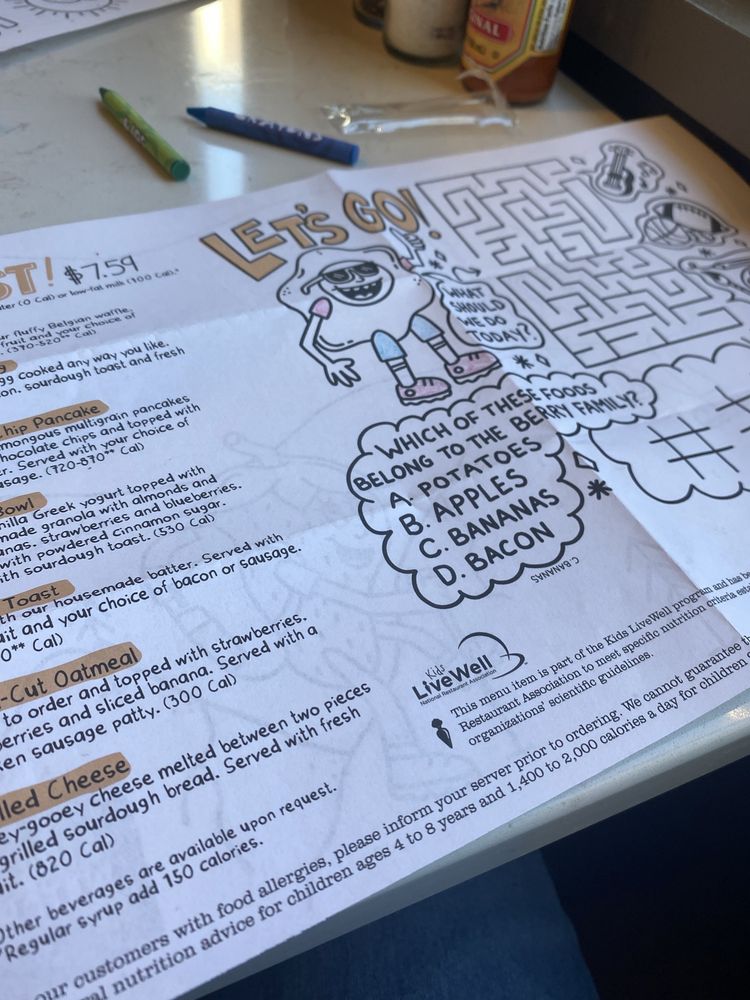 LET'S GO!
ST! $7.59
ter (0 Cal) or low-fat milk (100 Cal).*
r fluffy Belgian waffle.
fruit and your choice of
. (370-520** Cal)
gg cooked any way you like.
on. sourdough toast and fresh
hip Pancake
mongous multigrain pancakes
hocolate chips and topped with
er. Served with your choice of
usage. (720-870** Cal)
Bowl
nilla Greek yogurt topped with
made granola with almonds and
anas. strawberries and blueberries.
with powdered cinnamon sugar.
ith sourdough toast. (530 Cal)
Toast
th our housemade batter. Served with
uit and your choice of bacon or sausage.
0** Cal)
-Cut Oatmeal
to order and topped with strawberries.
berries and sliced banana. Served with a
ken sausage patty. (300 Cal)
lled Cheese
ey-gooey cheese melted between two pieces
grilled sourdough bread. Served with fresh
it. (820 Cal)
Other beverages are available upon request.
*Regular syrup add 150 calories.
WHAT
SHOULD
WE DO
TODAY?
WHICH OF THESE FOODS
BELONG TO THE BERRY FAMILY?
A. POTATOES
B. APPLES
C. BANANAS
D. BACON
C. BANANAS
Kids
LiveWell
National Restaurant Association
This menu item is part of the Kids LiveWell program and has be
Restaurant Association to meet specific nutrition criteria esta
organizations' scientific guidelines.
our customers with food allergies, please inform your server prior to ordering. We cannot guarantee th
al nutrition advice for children ages 4 to 8 years and 1,400 to 2,000 calories a day for children
NAL